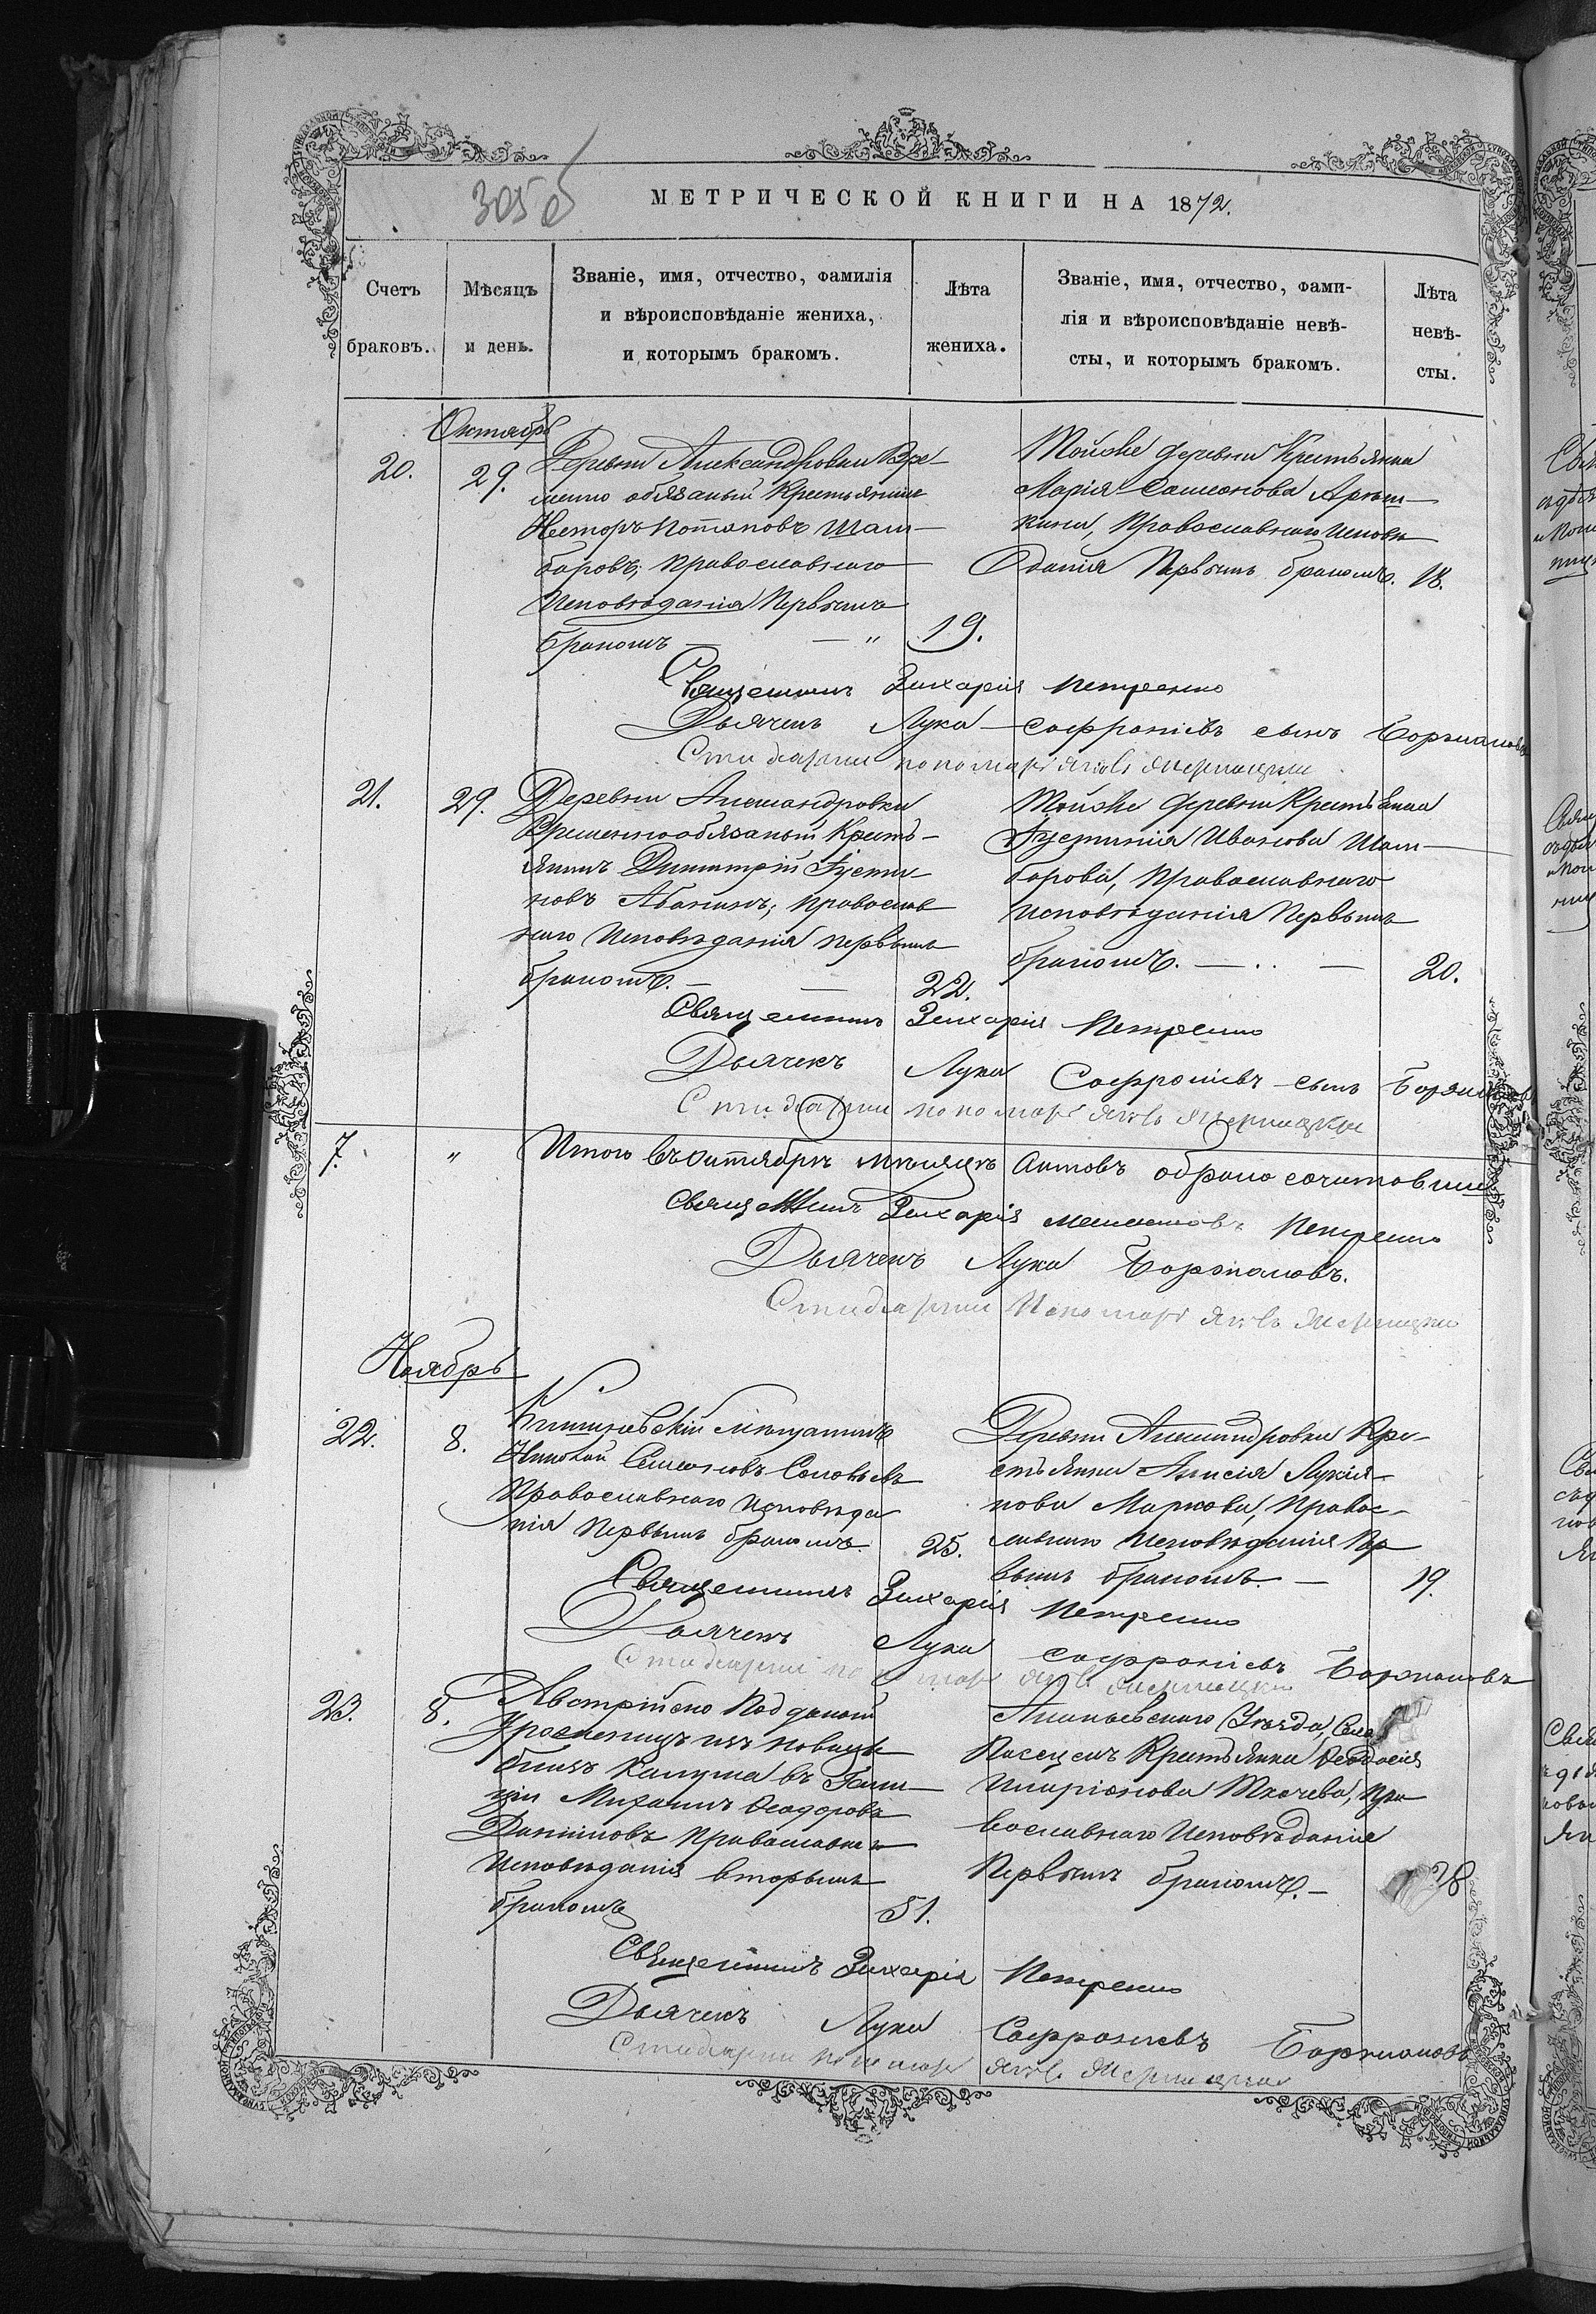 305 об
МЕТРИЧЕСКОЙ КНИГИ НА 1872.
Счетъ браковъ.
Мѣсяцъ и день.
Званіе, имя, отчество, фамилія
и вѣроисповѣданіе жениха,
и которымъ бракомъ.
Лѣта жениха.
Званіе, имя, отчество, фами-
лія и вѣроисповѣданіе невѣ-
сты, и которымъ бракомъ.
Лѣта невѣ-
сты.
Октябрь
20.
29.
Деревни Александровки Вре-
менно обязаный Крестьянинъ
Несторъ Потаповъ Шам-
боровъ, Православнаго
Исповѣданія Первымъ
бракомъ — — "
19.
Тойже деревни Крестьянка
Марія Симеонова
Православнаго Исповѣ
данія Первымъ бракомъ.
18.
Священникъ Захарія Петренко
Дьячекъ Лука Софроніевъ сынъ
пономарь Яковъ
21.
29.
Деревни Александровки
Временнообязаный Кресть-
янинъ Димитрій Густи-
новъ Православ
наго Исповѣданія первымъ
бракомъ. — —
22.
Тойже деревни Крестьянка
Іустинія Иванова Шам-
борова, Православнаго
исповѣданія Первымъ
бракомъ. — .. —
20.
Священникъ Захарія Петренко
Дьячекъ Лука Софроніевъ сынъ
пономарь Яковъ
7.
"
Итого въ октябрѣ мѣсяцѣ актовъ о бракосочитавших
Священникъ Захарія Петренко
Дьячекъ Лука
Пономарь Яковъ
Ноябрь
22.
8.
Кишиневскій мѣщанинъ
Николай Симеоновъ Соловьевъ
Православнаго Исповѣда
нія Первымъ бракомъ.
25.
Деревни Александровки Кре-
стьянка Анисія Лукія-
нова Маркова, Правос-
лавнаго Исповѣданія Пер
вымъ бракомъ. —
19.
Священникъ Захарія Петренко
Дьячекъ Лука Софроніевъ
пономарь Яковъ
23.
8.
Австрійско Подданой
Уроженецъ изъ
Калуша въ Гали-
ціи Михаилъ Феодоровъ
Даниловъ Православнаго
Исповѣданія вторымъ
бракомъ
51.
Ананьевскаго Уѣзда, Села
Пасецелъ Крестьянка Феодосія
Иларіонова Ткачева, Пра
вославнаго Исповѣданія
Первымъ бракомъ. —
28
Священникъ Захарія Петренко
Дьячекъ Лука Софроніевъ
пономарь Яковъ